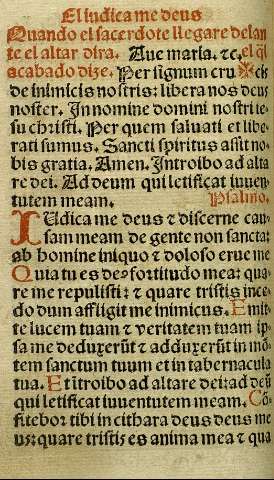 El iudica me deus
Quando el sacerdote llegare delan
te el altar dira. Aue maria. ⁊c, el q̄l
acabado dize. Per signum cru ✠ cis
de inimicis nostris: libera nos deus
noster. In nomine domini nostri ie-
su christi. Per quem saluati et libe-
rati sumus. Sancti spiritus assit no-
bis gratia. Amen. Introibo ad alta
re dei. Ad deum qui letificat iuuen-
tutem meam. Psalmo.
IUdica me deus ⁊ discerne cau
sam meam de gente non sancta:
ab homine iniquo ⁊ doloso erue me
Quia tu es deꝰ fortitudo mea: qua-
re me repulisti: ⁊ quare tristis ince-
do dum affligit me inimicus. Emit-
te lucem tuam ⁊ veritatem tuam ip-
sa me deduxerūt ⁊ adduxerūt in mō
tem sanctum tuum et in tabernacula
tua. Et introibo ad altare dei: ad deū
qui letificat iuuentutem meam. Cō-
fitebor tibi in cithara deus deus me
us: quare tristis es anima mea ⁊ qua